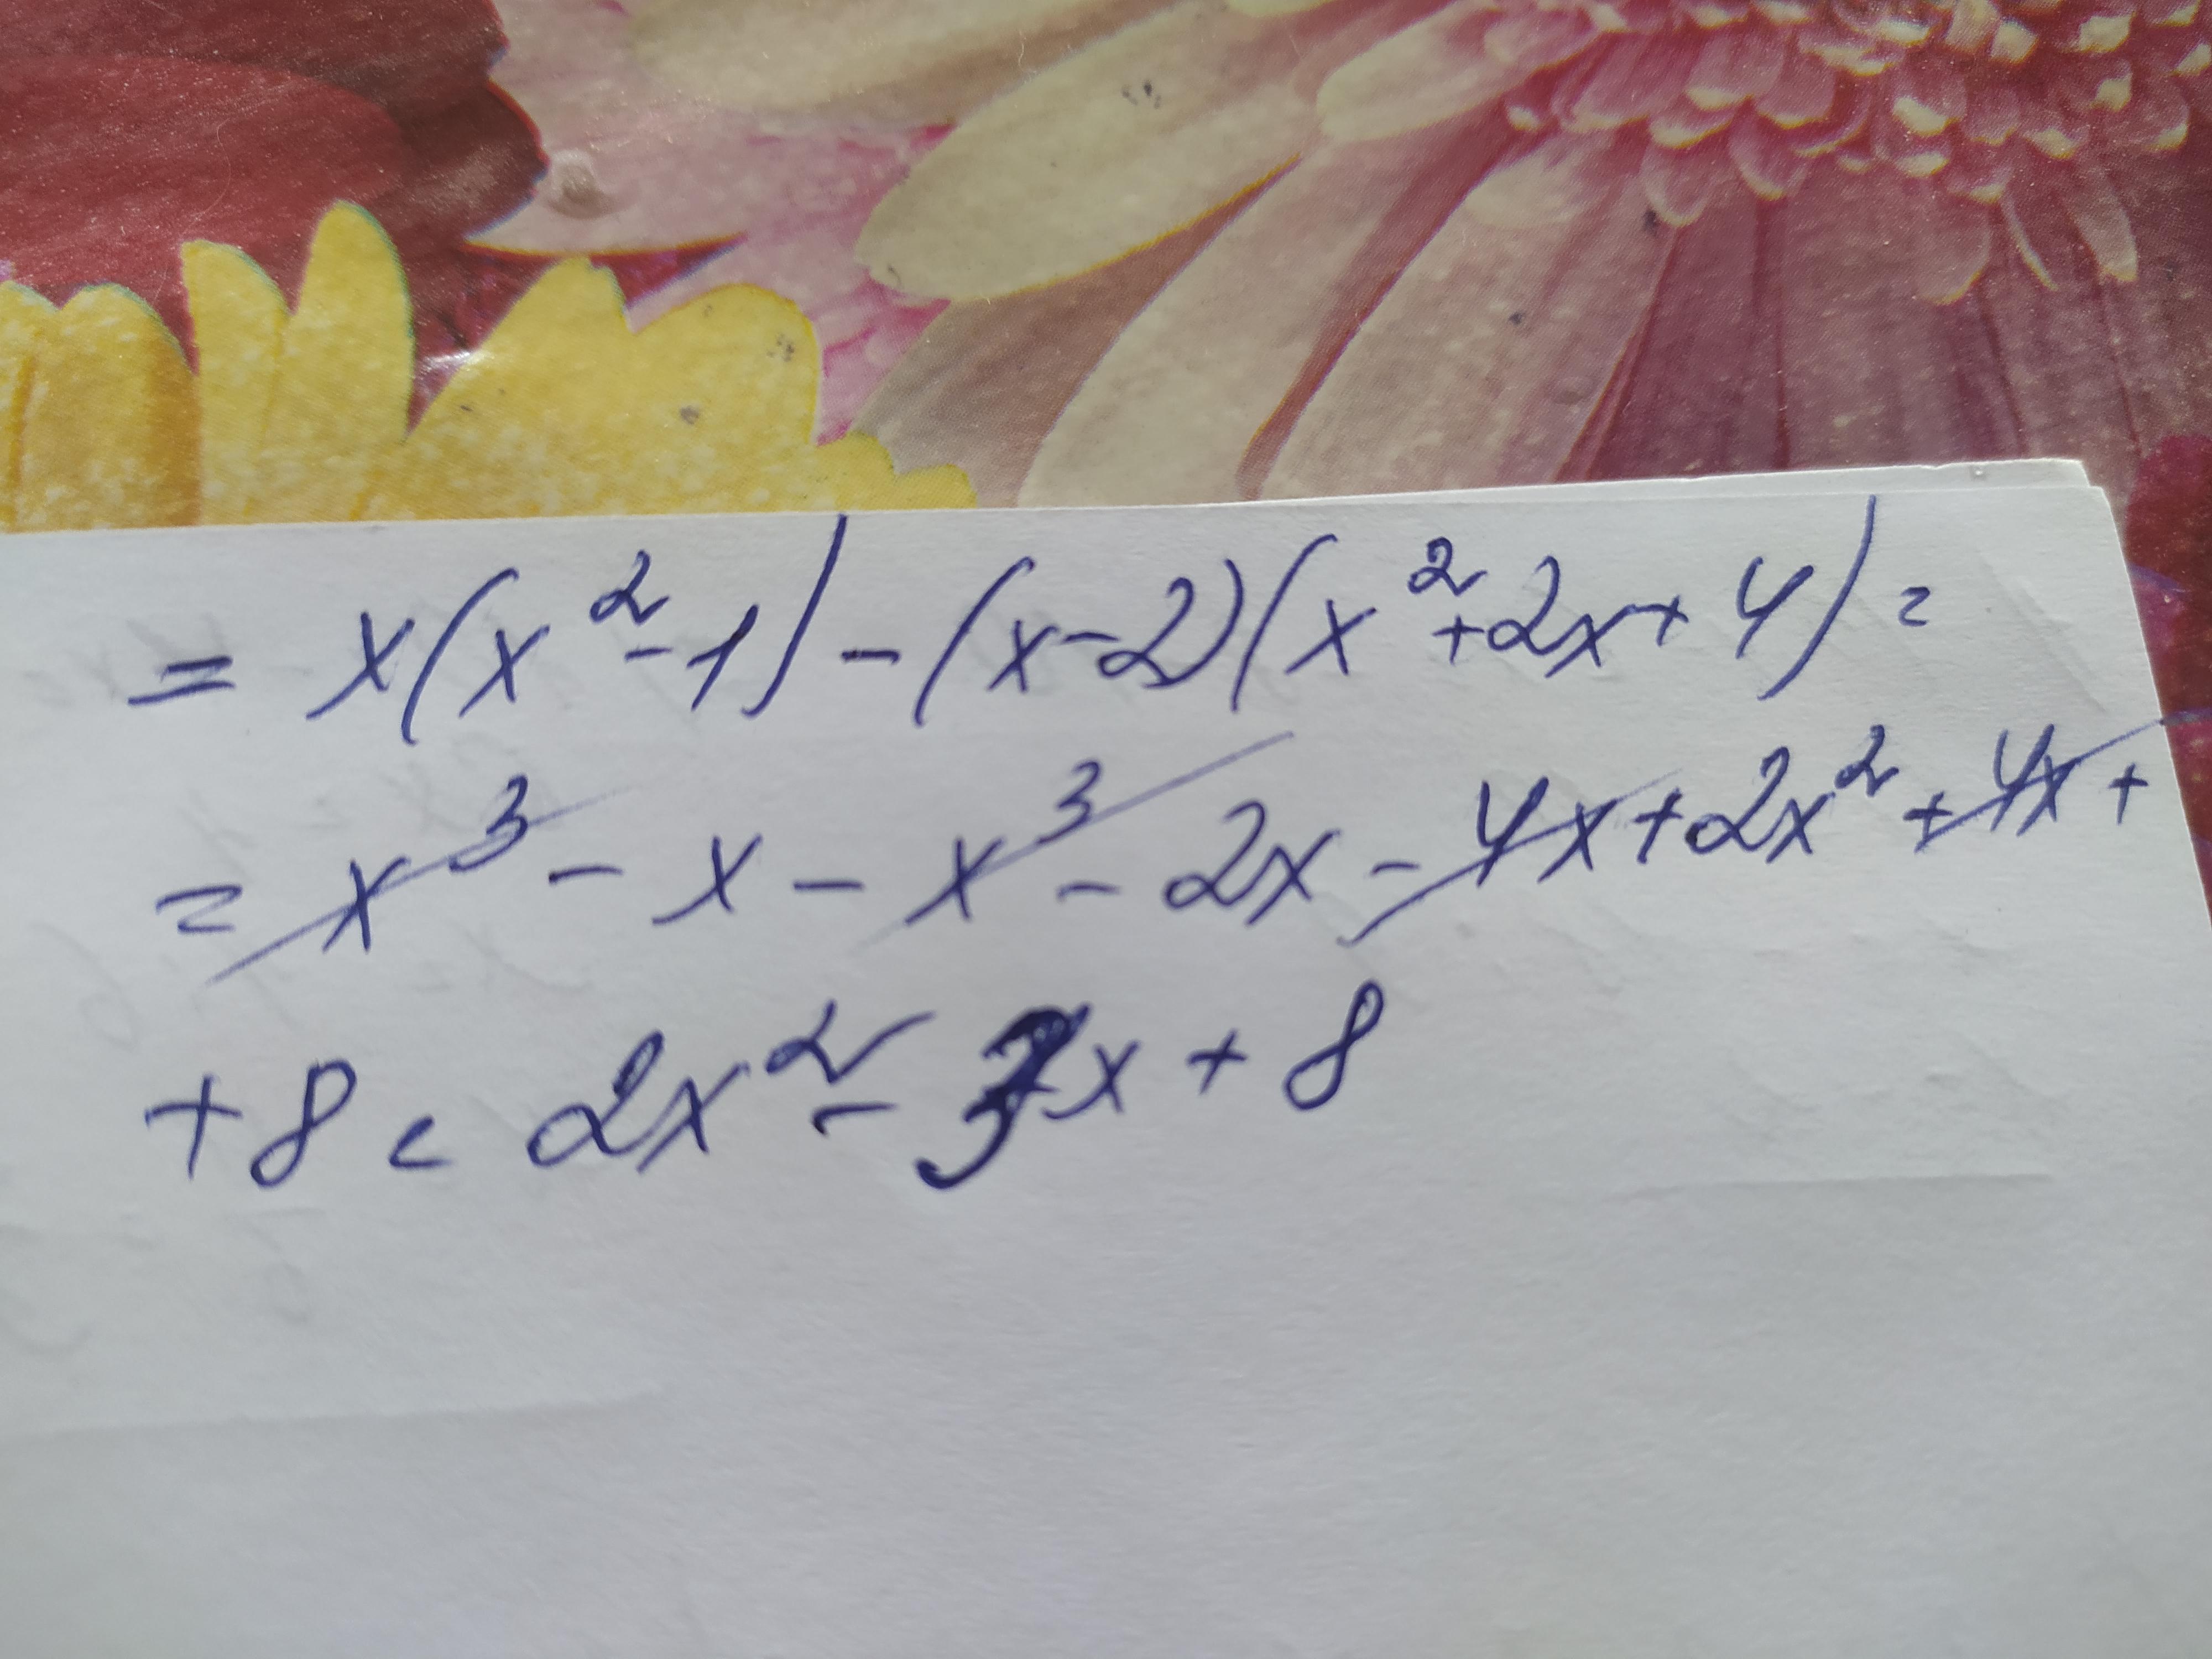 = x(x² - 1) - (x - 2)(x² + 2x + 4) =
= x³ - x - x³ - 2x - 4x + 2x² + 4x +
+ 8 = 2x² - 3x + 8